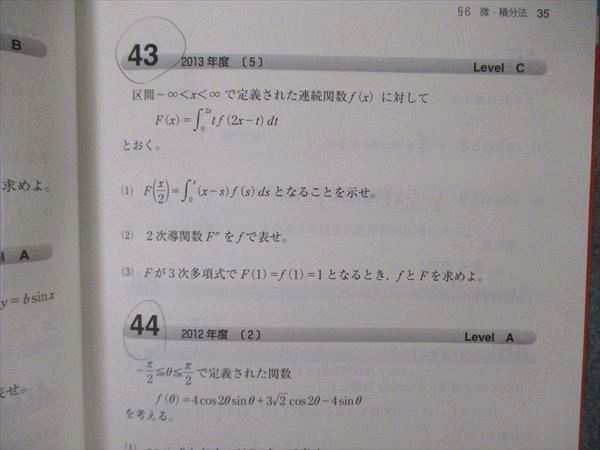 §6 微・積分法 35
B
43 2013年度 〔5〕 Level C
区間−∞<x<∞で定義された連続関数f(x)に対して
F(x)=∫₀²ˣ tf(2x−t)dt
とおく。
(1) F(x/2)=∫₀ˣ(x−s)f(s)dsとなることを示せ。
(2) 2次導関数F″をfで表せ。
(3) Fが3次多項式でF(1)=f(1)=1となるとき，fとFを求めよ。
求めよ。
A
y=bsinx
44 2012年度 〔2〕 Level A
−π/2≦θ≦π/2で定義された関数
f(θ)=4cos2θsinθ+3√2cos2θ−4sinθ
を考える。
せ。